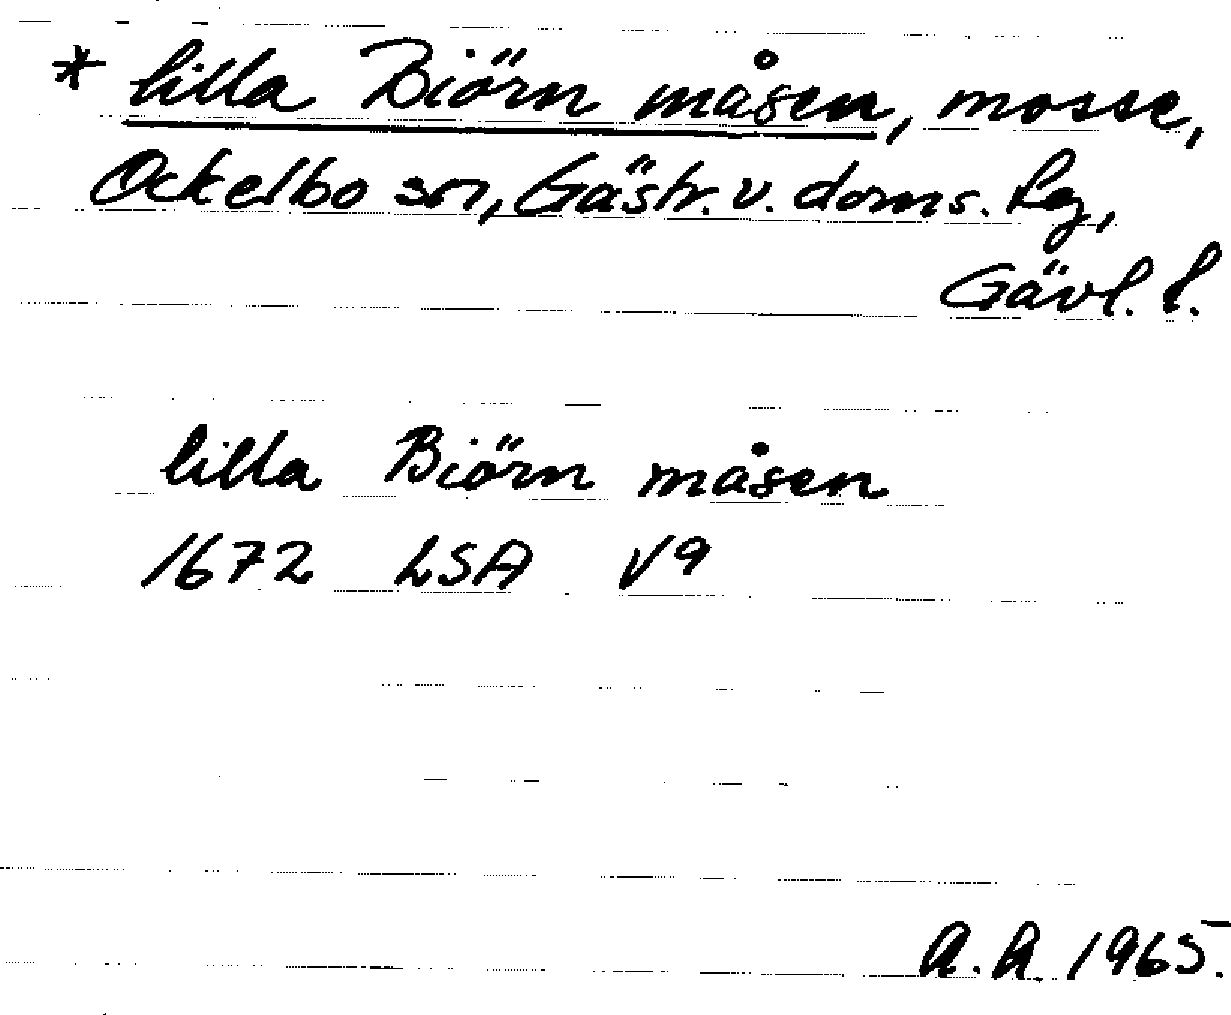 * lilla Biörn måsen, mosse,
Ockelbo sn, Gästr. v. doms. lag,
Gävl. l.
lilla Biörn måsen
1672 LSA V9
A.A. 1965.